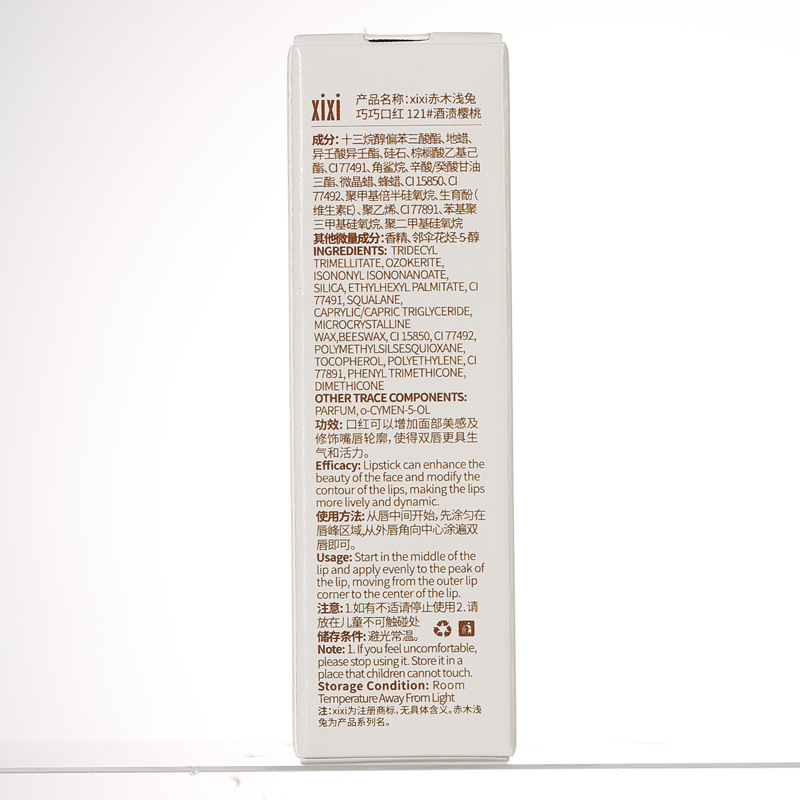 xixi
产品名称:xixi赤木浅兔
巧巧口红 121#酒渍樱桃
成分:十三烷醇偏苯三酸酯、地蜡、
异壬酸异壬酯、硅石、棕榈酸乙基己
酯、CI 77491、角鲨烷、辛酸/癸酸甘油
三酯、微晶蜡、蜂蜡、CI 15850、CI
77492、聚甲基倍半硅氧烷、生育酚(
维生素E)、聚乙烯、CI 77891、苯基聚
三甲基硅氧烷、聚二甲基硅氧烷
其他微量成分:香精、邻伞花烃-5-醇
INGREDIENTS: TRIDECYL
TRIMELLITATE, OZOKERITE,
ISONONYL ISONONANOATE,
SILICA, ETHYLHEXYL PALMITATE, CI
77491, SQUALANE,
CAPRYLIC/CAPRIC TRIGLYCERIDE,
MICROCRYSTALLINE
WAX,BEESWAX, CI 15850, CI 77492,
POLYMETHYLSILSESQUIOXANE,
TOCOPHEROL, POLYETHYLENE, CI
77891, PHENYL TRIMETHICONE,
DIMETHICONE
OTHER TRACE COMPONENTS:
PARFUM, o-CYMEN-5-OL
功效: 口红可以增加面部美感及
修饰嘴唇轮廓, 使得双唇更具生
气和活力。
Efficacy: Lipstick can enhance the
beauty of the face and modify the
contour of the lips, making the lips
more lively and dynamic.
使用方法: 从唇中间开始, 先涂匀在
唇峰区域,从外唇角向中心涂遍双
唇即可。
Usage: Start in the middle of the
lip and apply evenly to the peak of
the lip, moving from the outer lip
corner to the center of the lip.
注意: 1.如有不适请停止使用2.请
放在儿童不可触碰处
储存条件: 避光常温。
Note: 1. If you feel uncomfortable,
please stop using it. Store it in a
place that children cannot touch.
Storage Condition: Room
Temperature Away From Light
注: xixi为注册商标, 无具体含义。赤木浅
兔为产品系列名。